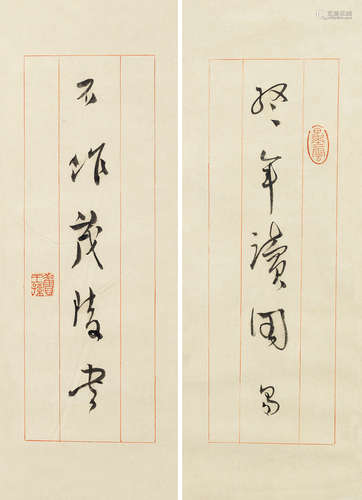 終年讀周易
不作茂陵書